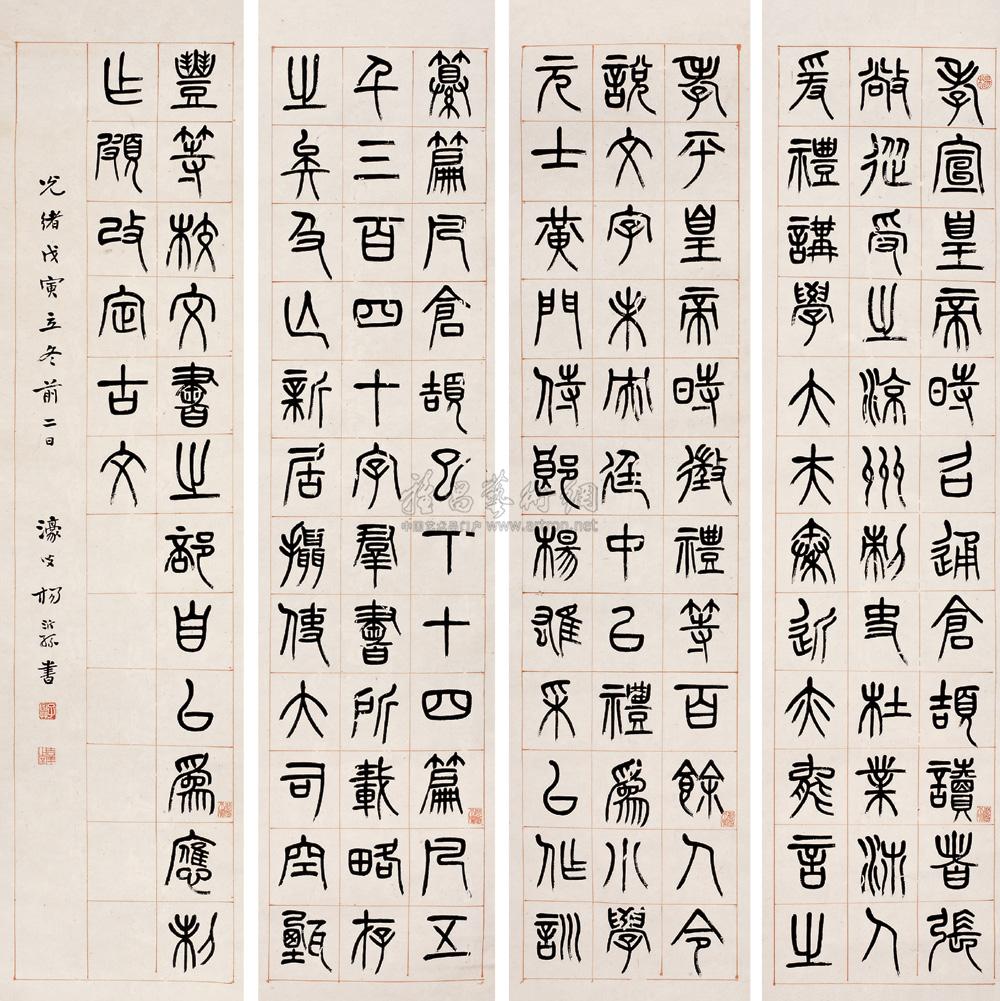 孝宣皇帝時召通倉頡讀者張
敞從受之涼州刺史杜業沛人
爰禮講學大夫秦近亦能言之
孝平皇帝時徵禮等百餘人令
說文字未央廷中以禮為小學
元士黃門侍郎楊雄采以作訓
纂篇凡倉頡以下十四篇凡五
千三百四十字羣書所載略存
之矣及亡新居攝使大司空甄
豐等校文書之部自以為應制
作頗改定古文
光緒戊寅立冬前二日 濠叟楊沂孫書
雅昌藝術網
中国艺术品门户 www.artron.net